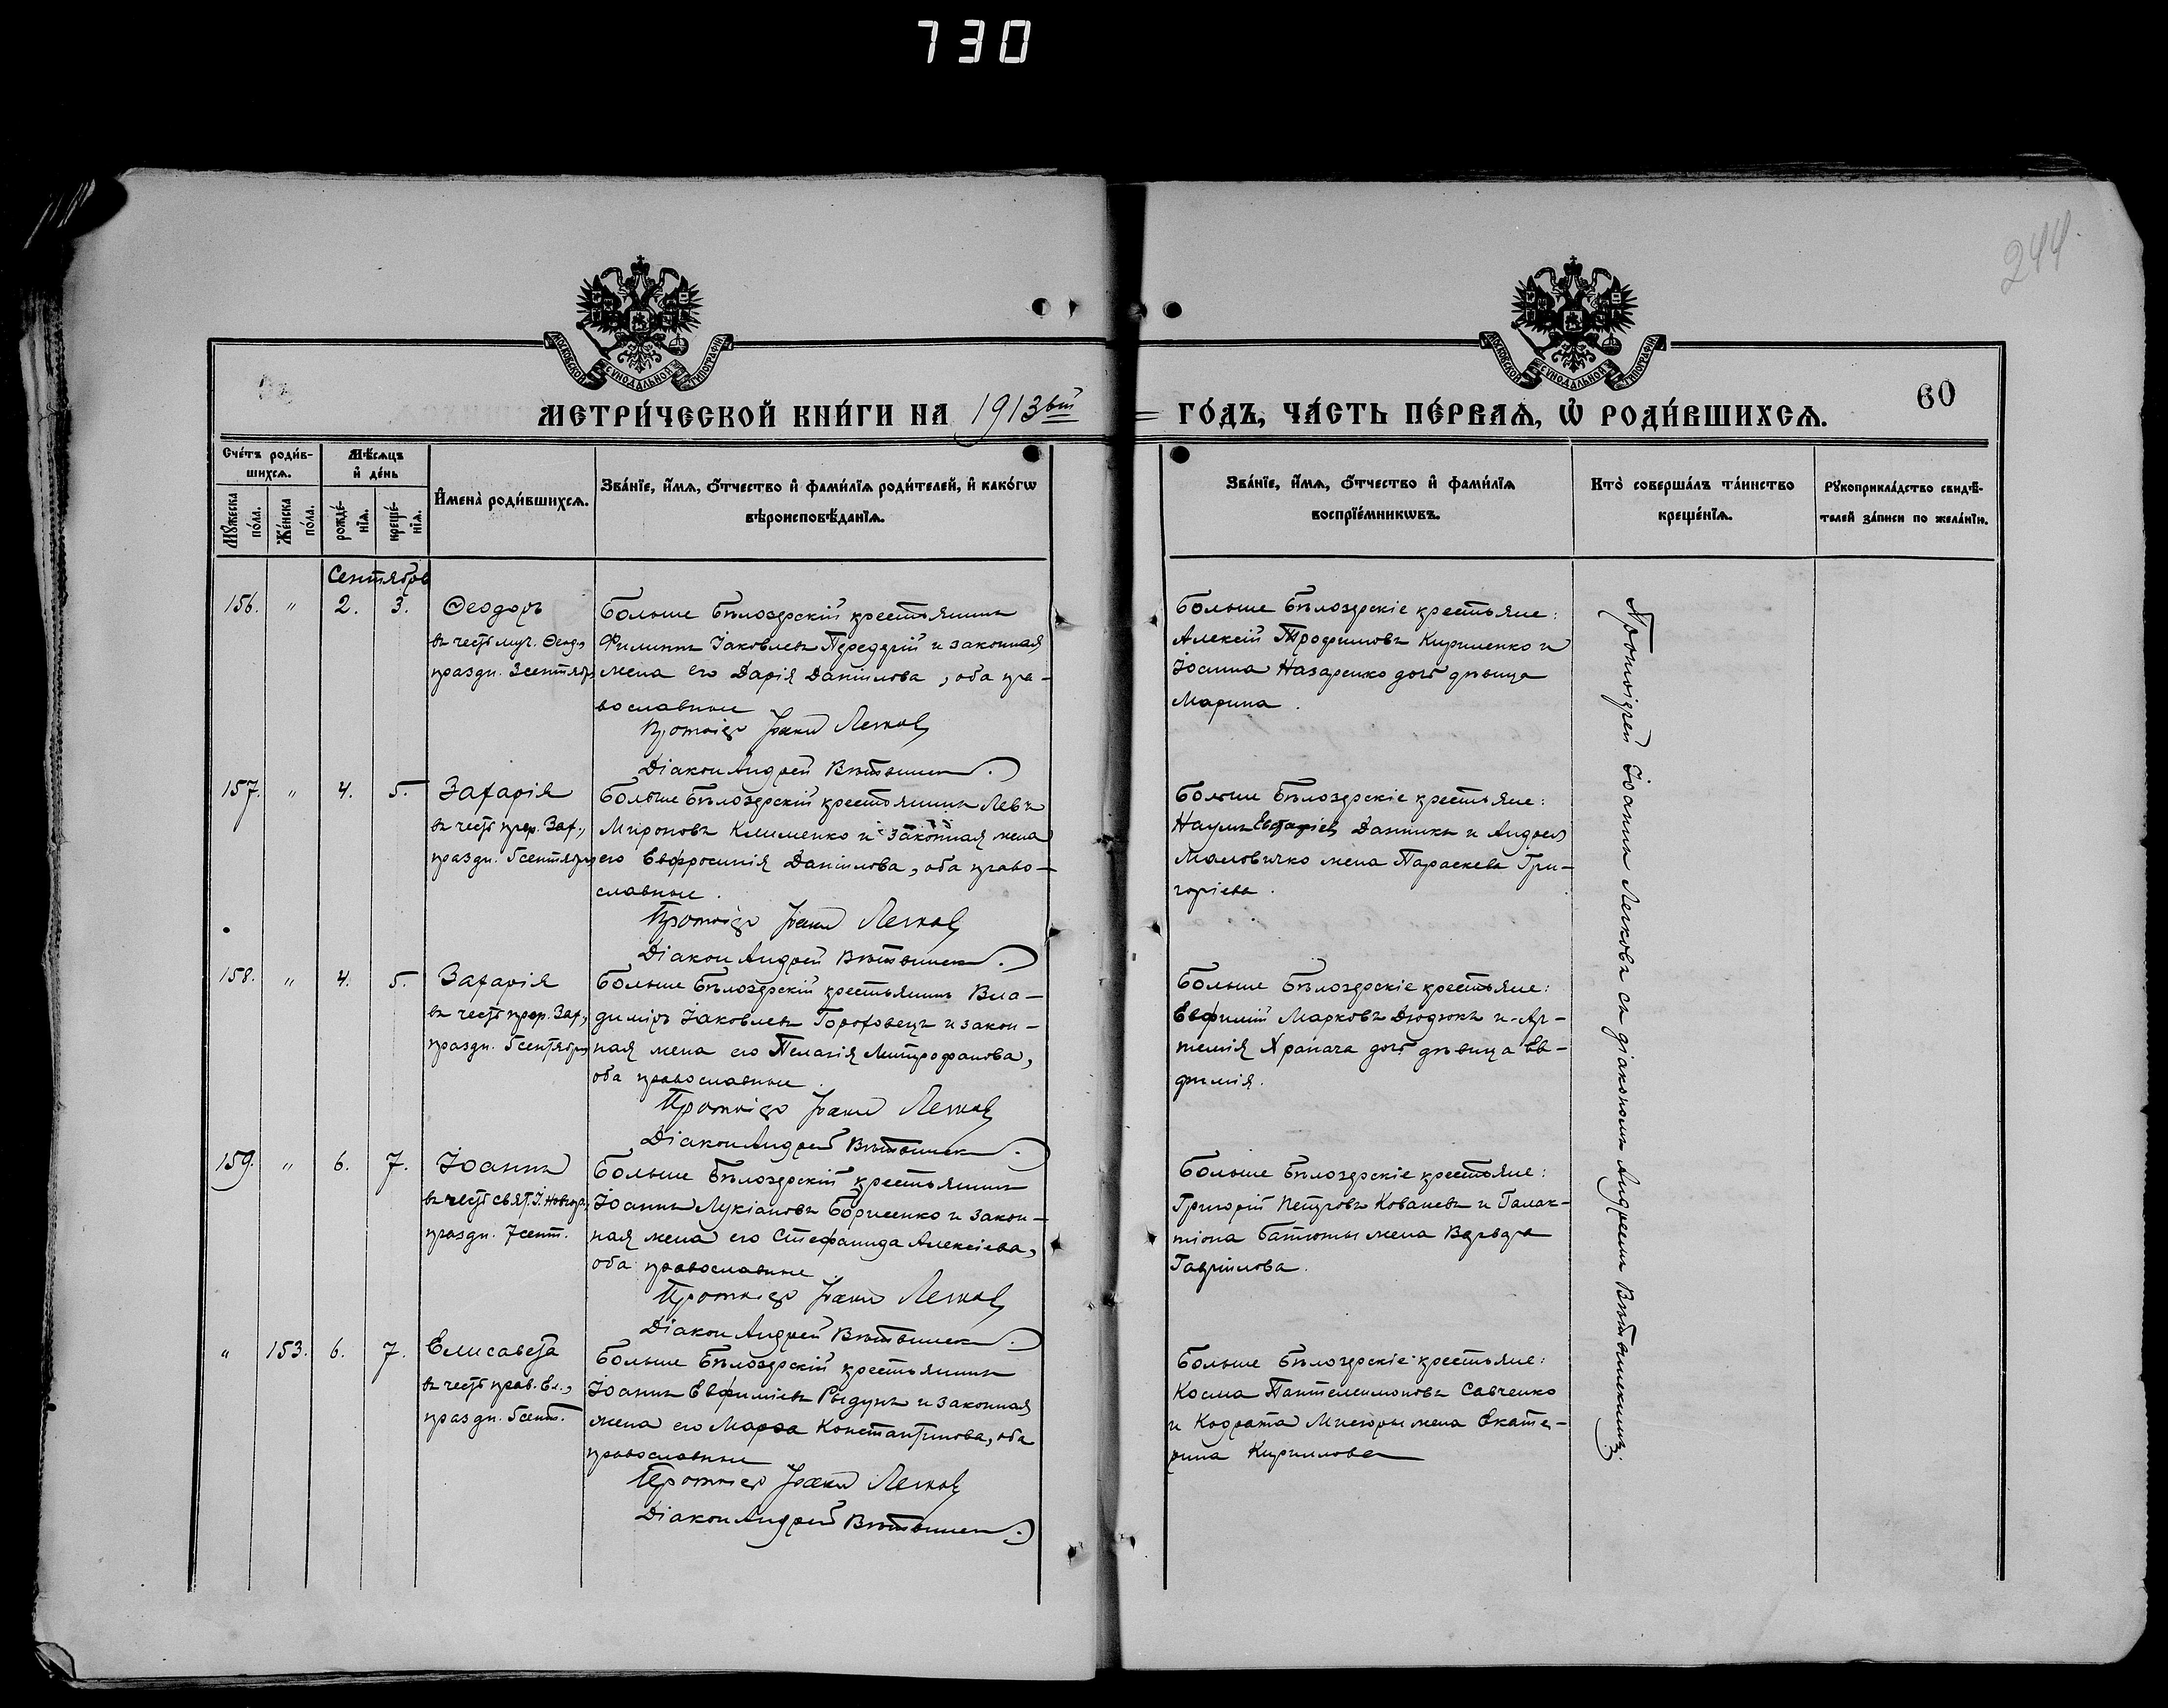 730
244.
МОСКОВСКОЙ СѴНОДАЛЬНОЙ ТИПОГРАФІИ
МОСКОВСКОЙ СѴНОДАЛЬНОЙ ТИПОГРАФІИ
60
МЕТРИ́ЧЕСКОЙ КНИ́ГИ НА 1913ый ГО́ДЪ, ЧА́СТЬ ПЕ́РВАѦ, Ѡ҆ РОДИ́ВШИХСѦ.
Сче́тъ роди́в-
шихсѧ.
Мꙋ́жеска по́ла.
Же́нска по́ла.
Мѣ́сѧцъ
и҆ де́нь
рожде́-нїѧ.
креще́-нїѧ.
И҆мена̀ роди́вшихсѧ.
Зва́нїе, и҆́мѧ, ѻ҆́тчество и҆ фами́лїѧ роди́телей, и҆ како́гѡ
вѣроисповѣ́данїѧ.
Зва́нїе, и҆́мѧ, ѻ҆́тчество и҆ фами́лїѧ
воспрїе́мникѡвъ.
Кто̀ соверша́лъ та́инство
креще́нїѧ.
Рꙋкоприкла́дство свидѣ́-
телей за́писи по жела́нїю.
Сентября
156. " 2. 3. Ѳеодоръ
въ честь муч. Ѳеод.,
праздн. 3 сентяб.
Больше Бѣлозерскій крестьянинъ
Филиппъ Іаковлевъ Передерій и законная
жена его Дарія Даніилова, оба пра-
вославные
Протоіер Іоаннъ Легков
Діакон Андрей
Больше Бѣлозерскіе крестьяне:
Алексій Трофимовъ Кириленко и
Іоанна Назаренко дочь дѣвица
Марина.
157. " 4. 5. Захарія
въ честь прор. Зах.,
праздн. 5 сентября
Больше Бѣлозерскій крестьянинъ Левъ
Мироновъ Клименко и законная жена
его Евфросинія Даніилова, оба право-
славные.
Протоіер Іоаннъ Легков
Діакон Андрей
Больше Бѣлозерскіе крестьяне:
Наумъ Евстафіевъ и Андрея
Маловичко жена Параскева Гри-
горіева.
158. " 4. 5. Захарія
въ честь прор. Зах.,
праздн. 5 сентября
Больше Бѣлозерскій крестьянинъ Вла-
диміръ Іаковлевъ Гороховецъ и закон-
ная жена его Пелагія Митрофанова,
оба православные.
Протоіер Іоаннъ Легков
Діакон Андрей
Больше Бѣлозерскіе крестьяне:
Евфимій Марковъ Дюдюкъ и Ар-
темія Храпача дочь дѣвица Ев-
фимія.
159. " 6. 7. Іоаннъ
въ честь свят. І. Новгор.,
праздн. 7 сент.
Больше Бѣлозерскій крестьянинъ
Іоаннъ Лукіановъ Борисенко и закон-
ная жена его Стефанида Алексіева,
оба православные
Протоіер Іоаннъ Легков
Діакон Андрей
Больше Бѣлозерскіе крестьяне:
Григорій Петровъ Ковалевъ и Галак-
тіона Батюты жена Варвара
Гавріилова.
" 153. 6. 7. Елисавета
въ честь прав. Ел.,
праздн. 5 сент.
Больше Бѣлозерскій крестьянинъ
Іоаннъ Евфиміевъ Рыдунъ и законная
жена его Марѳа Константинова, оба
православные
Протоіер Іоаннъ Легков
Діакон Андрей
Больше Бѣлозерскіе крестьяне:
Косма Пантелеимоновъ Савченко
и Кодрата жена Екате-
рина Кириллова
Протоіерей Іоаннъ Легковъ съ діакономъ Андреемъ